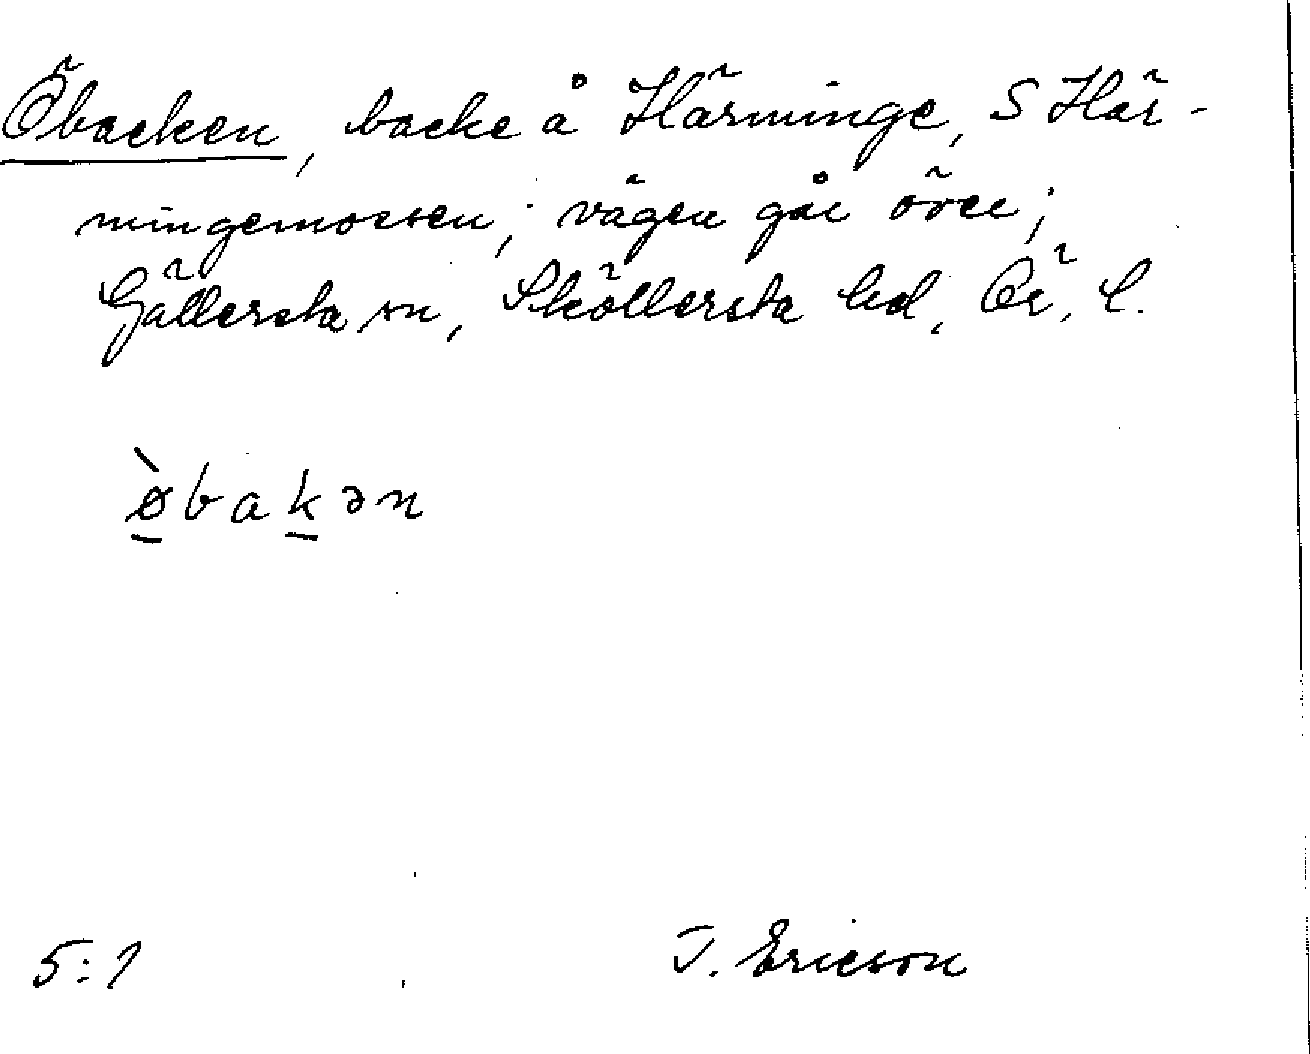 Öbacken, backe å Härminge, S Här-
mingemossen; vägen går över;
Gällersta sn, Sköllersta hd, Ör. l.
ø̀bakən
5:1
J. Ericson